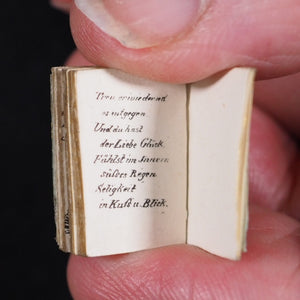 Treu erwiedernd
es entgegen
Und du hast
der Liebe Glück.
Fühlst im innern
süßes Regen
Seligkeit
in Kuß u. Blick.